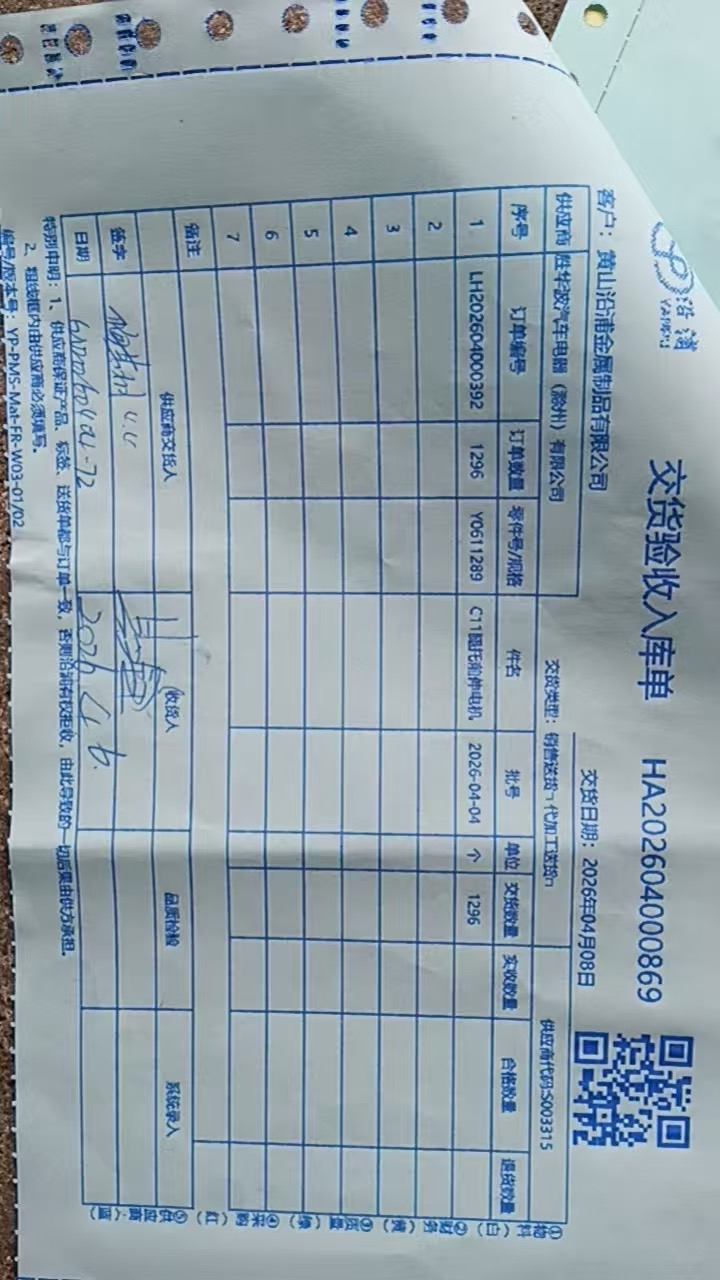 沿浦
YANPU
交货验收入库单 HA202604000869
客户：黄山沿浦金属制品有限公司 交货日期：2026年04月08日
供应商 胜华波汽车电器（滁州）有限公司 交货类型：销售送货 代加工送货 供应商代码:S003315
序号 订单编号 订单数量 零件号/规格 件名 批号 单位 交货数量 实收数量 合格数量 退货数量
1 LH202604000392 1296 Y0611289 C11腿托前伸电机 2026-04-04 个 1296
2
3
4
5
6
7
备注
供应商交货人 收货人 品质检验 系统录入
签字
日期 2026 4 6.
特别申明：1、供应商保证产品、标签、送货单都与订单一致，否则沿浦有权拒收，由此导致的一切后果由供方承担。
2、粗线框内由供应商必须填写。
编号/版本号：YP-PMS-Mat-FR-W03-01/02
①物料（白）②财务（黄）③质量（绿）④采购（红）⑤供应商（蓝）